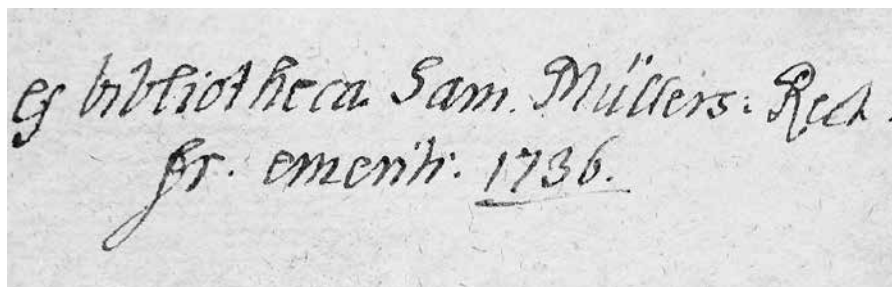 ex bibliotheca Sam. Müllers: Rect.
pr. emeriti. 1736.